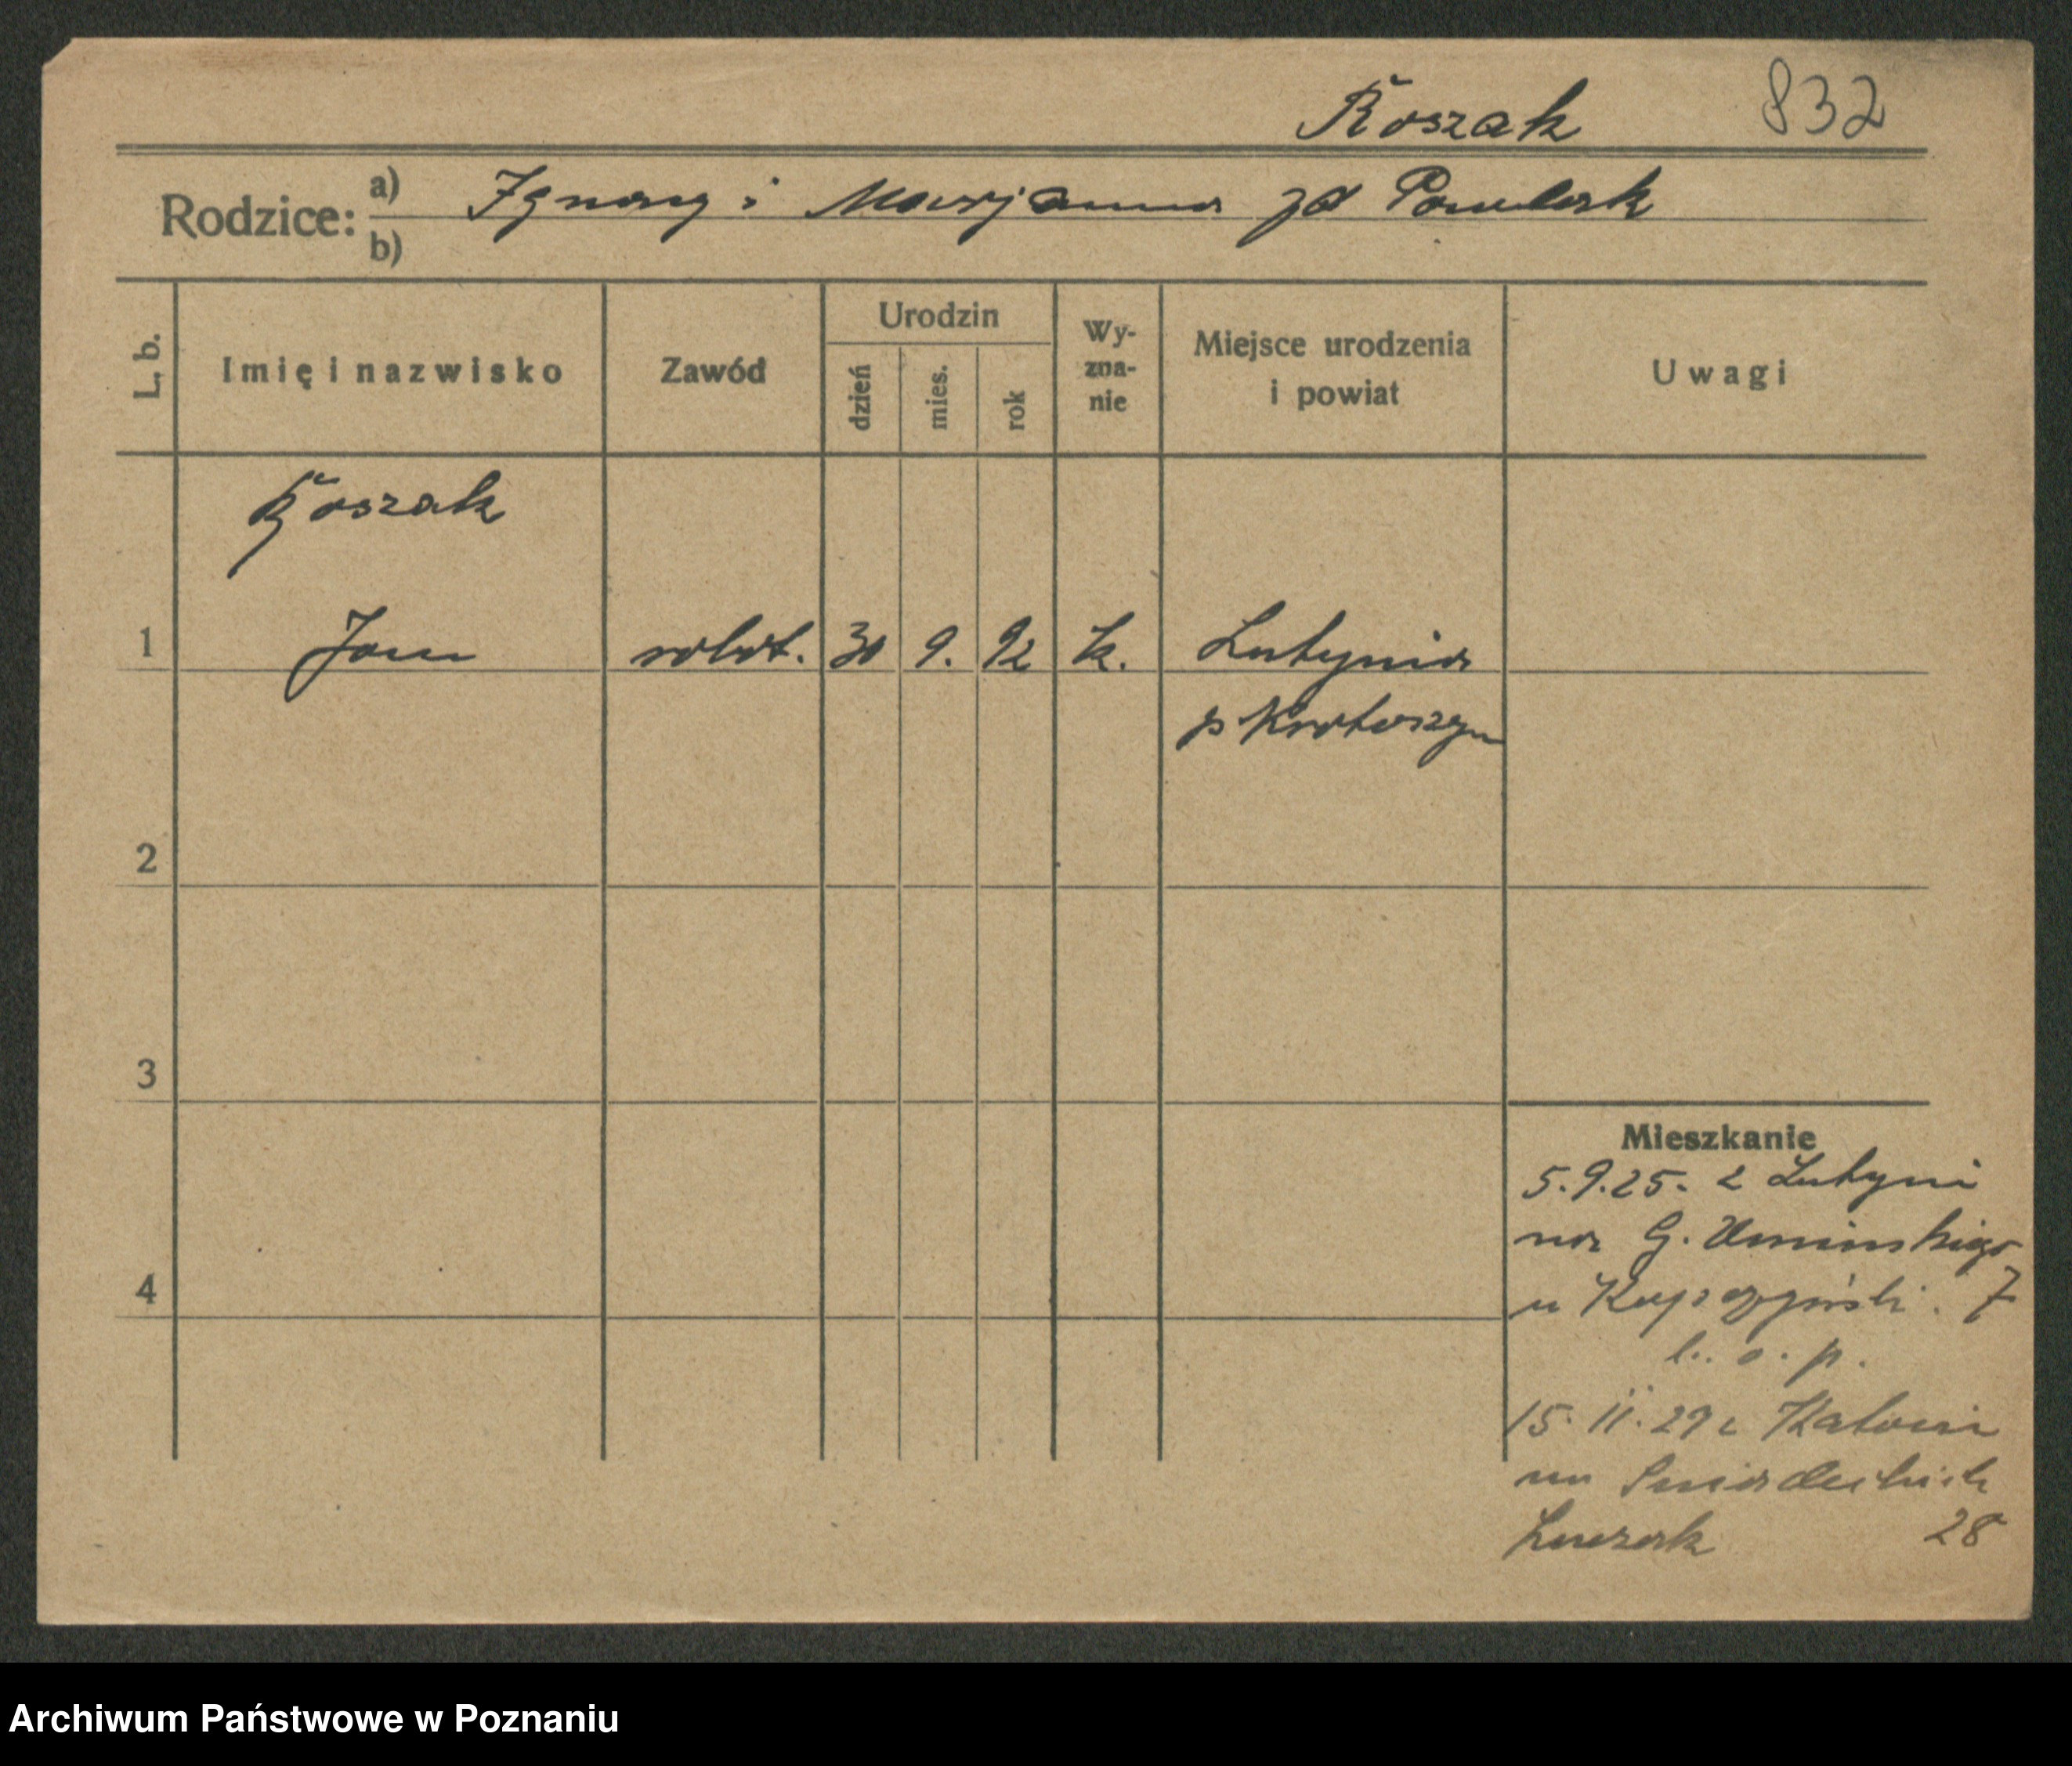 Koszak 832
Rodzice: a) Ignacy i Marjanna zd Pawlak
b)
L. b. Imię i nazwisko Zawód Urodzin dzień mies. rok Wy-zna-nie Miejsce urodzenia i powiat Uwagi
Koszak
1 Jan robot. 30 9. 92 k. Lutynia
p Krotoszyn
2
3
Mieszkanie
5.9.25. z Lutyni
na G. Umińskiego
4 u 7
b. o. p.
15.11.29 z
na Śniadeckich
28
Archiwum Państwowe w Poznaniu